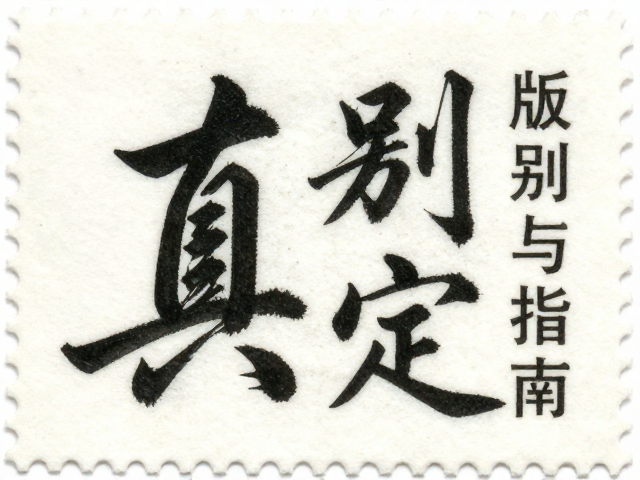 版别与指南
别定
真